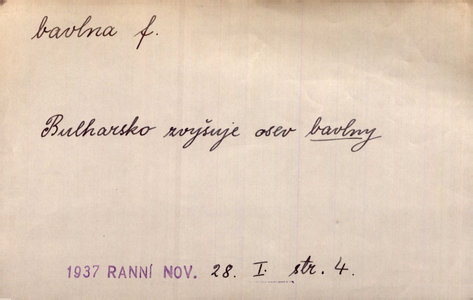 bavlna f.
Bulharsko zvyšuje osev bavlny
1937 RANNÍ NOV. 28. I. str. 4.